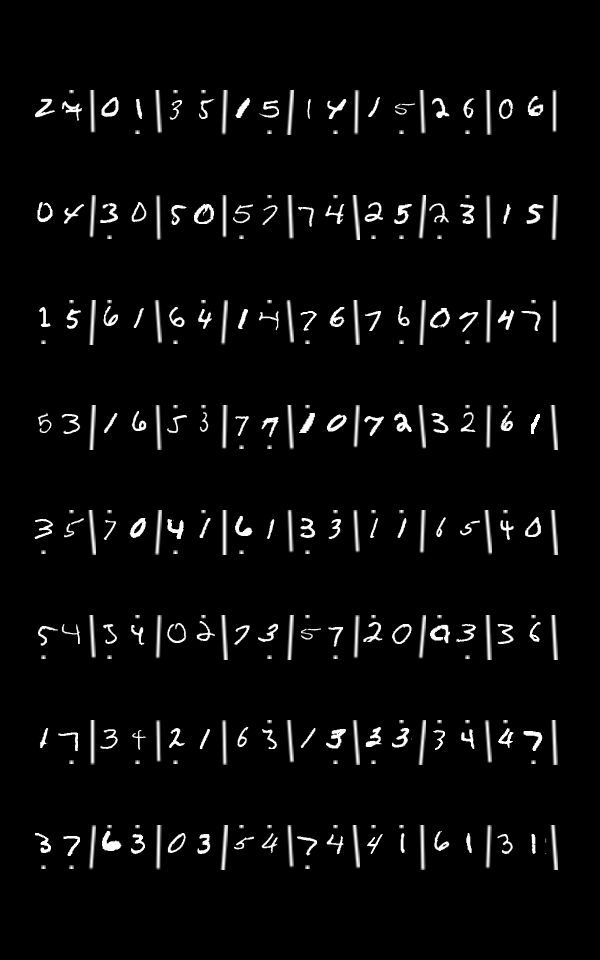 2 4 | 0 1 | 3 5 | 1 5 | 1 4 | 1 5 | 2 6 | 0 6 |
0 4 | 3 0 | 5 0 | 5 7 | 7 4 | 2 5 | 2 3 | 1 5 |
1 5 | 6 1 | 6 4 | 1 4 | 7 6 | 7 6 | 0 7 | 4 7 |
5 3 | 1 6 | 5 3 | 7 7 | 1 0 | 7 2 | 3 2 | 6 1 |
3 5 | 7 0 | 4 1 | 6 1 | 3 3 | 1 1 | 6 5 | 4 0 |
5 4 | 3 4 | 0 2 | 7 3 | 5 7 | 2 0 | 0 3 | 3 6 |
1 7 | 3 4 | 2 1 | 6 3 | 1 3 | 3 3 | 3 4 | 4 7 |
3 7 | 6 3 | 0 3 | 5 4 | 7 4 | 4 1 | 6 1 | 3 1 |